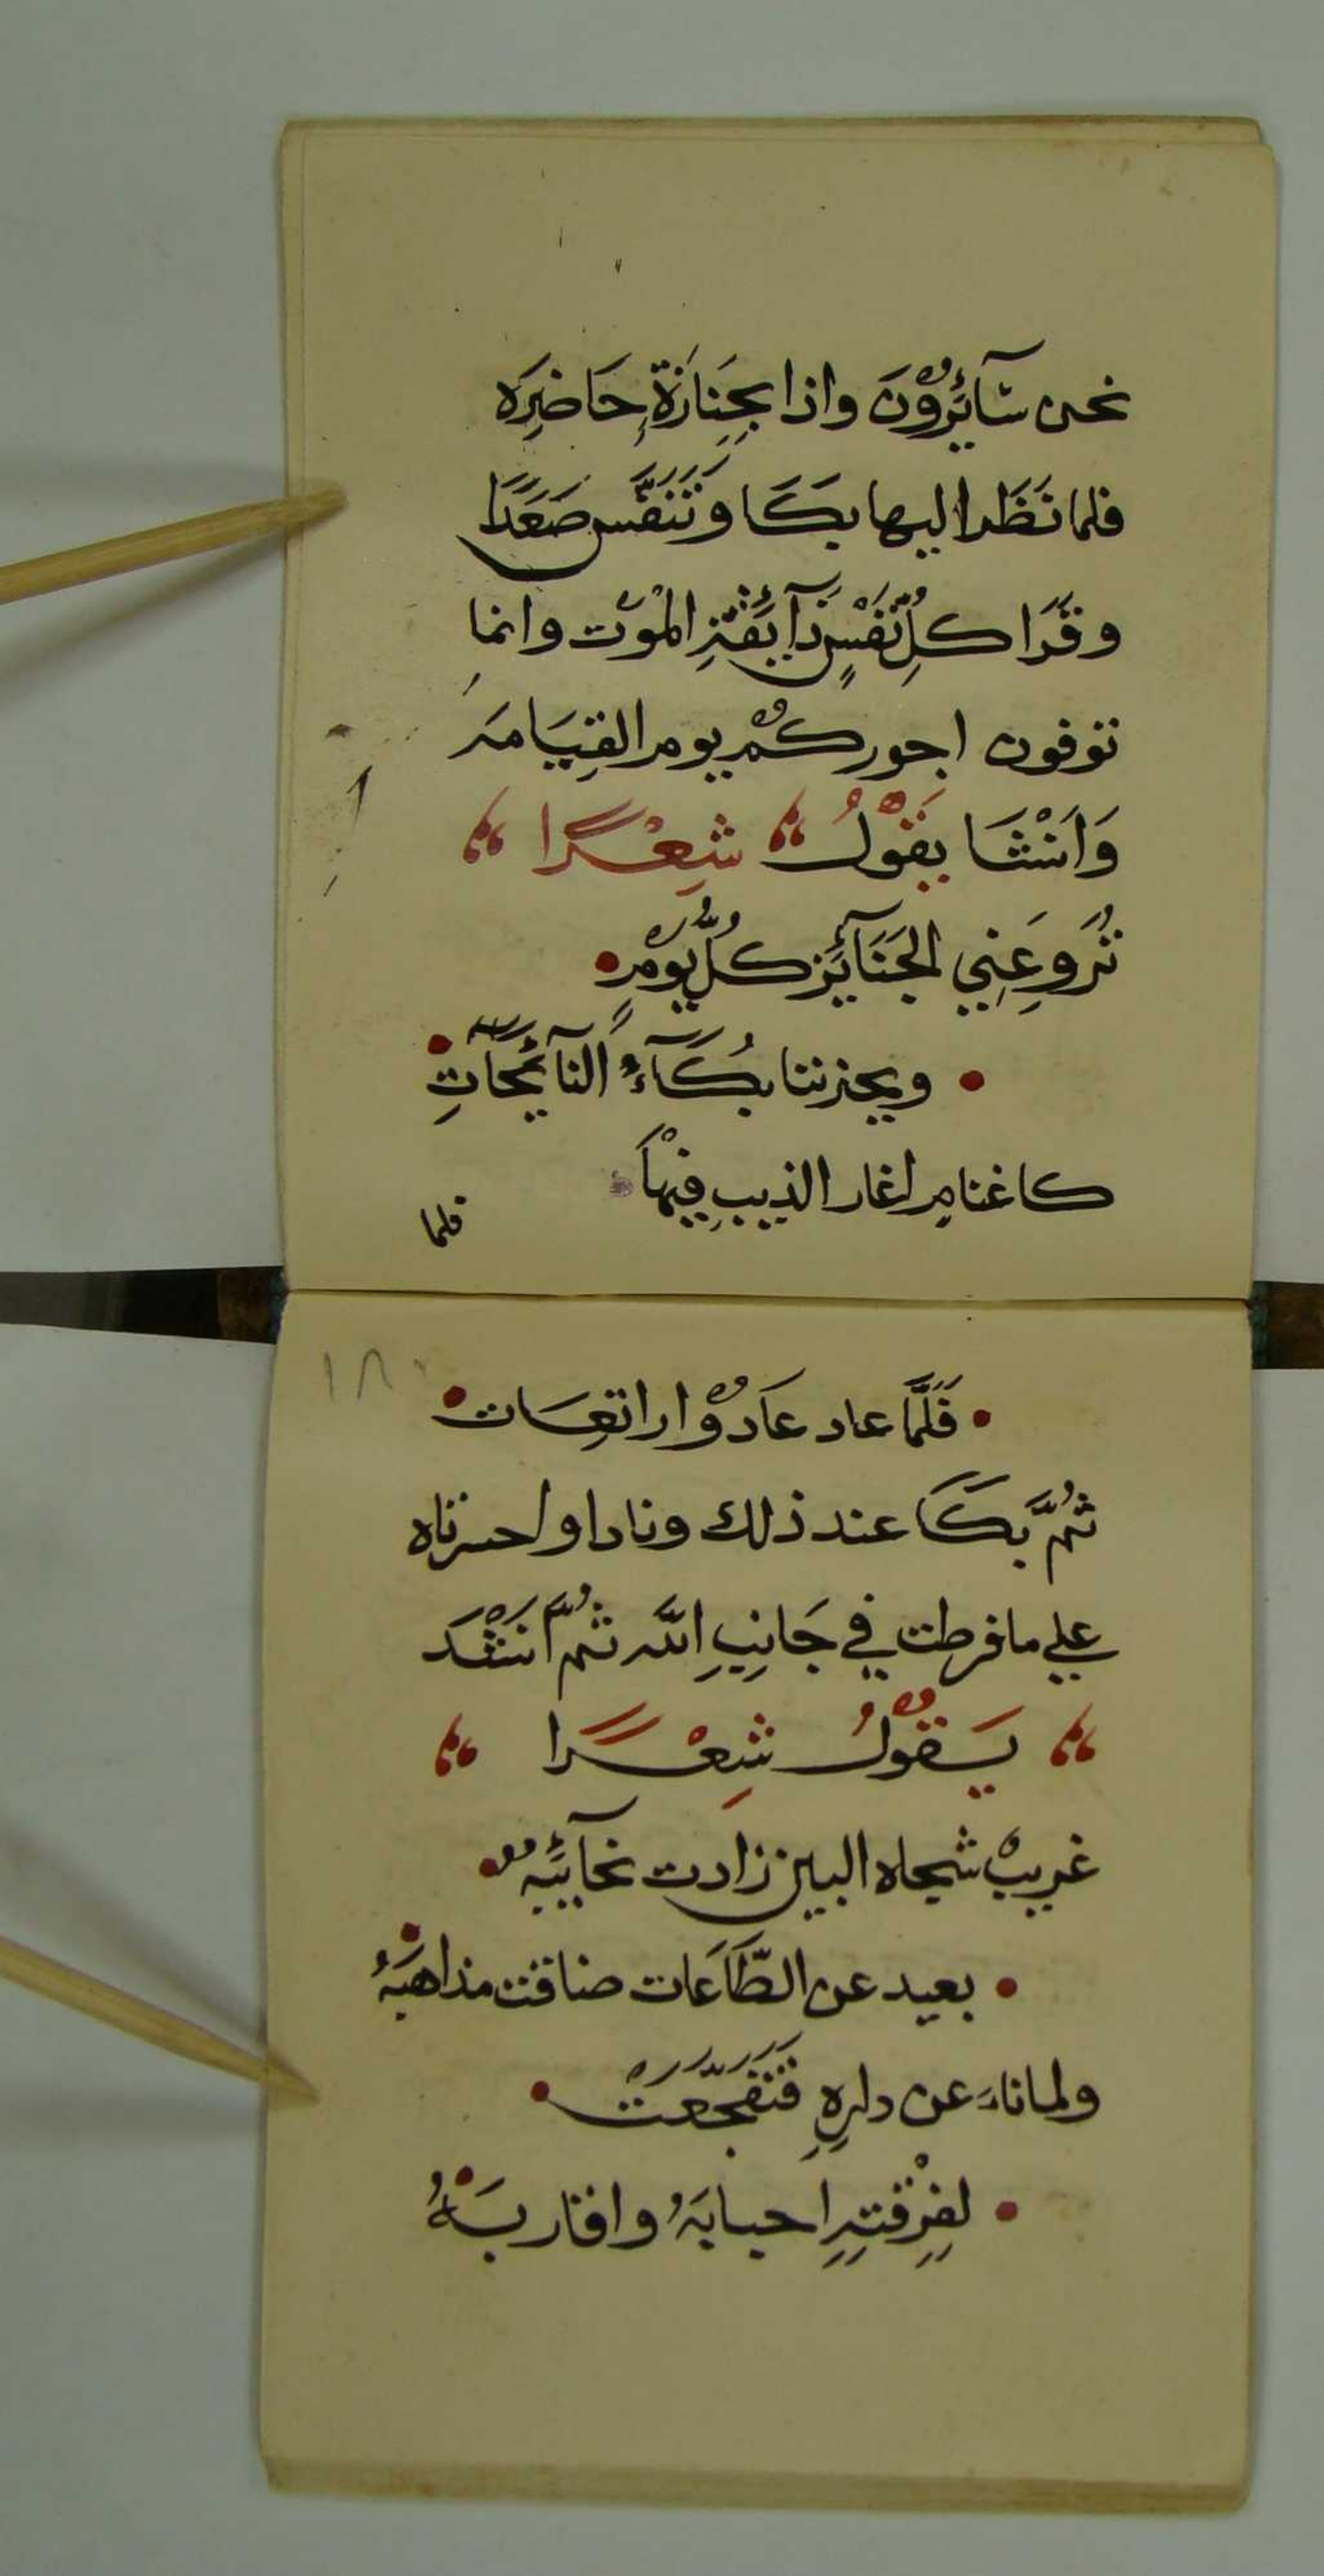 نحن سَآئِرُوْنَ واذا بجَنِازَةٍ حَاضِرَه
فلما نَظَر اليها بَكَا وَتَنَفَّس صَعَدًا
وقَرَا كلِ نَفْسٍ ذَآئِقَةِ الْمُوْت وانما
توفون اجوركُمْ يومر القِيَامَه
وَاَنْشَا يَقُوْلُ شِعْرًا
تُرَوِعَنِي الجَنَآئِز كلُّ يُوْمٍ
ويحزننا بُكَآءُ النآئِحَآتِ
كاغنامٍ اغار الذيبِ فيْهَا
فلما
١٨
فَلَمَّا عاد عَادُوْا راتِعَات
ثُمَّ بَكَا عند ذلك ونادا واحسرتاه
علي ما فرطت في جَانِبِ اللّه ثُمَّ انَشْدَ
يَقُوْلُ شِعْرًا
غريبْ شجاه البين زادت نحآئِبُه
بعيد عن الطَّاعَات ضاقت مذاهبَهُ
ولما ناءَ عن دارِهِ فَتَفَجَّعَتْ
لفِرْقتِهِ احبابَهُ واقاربَهُ